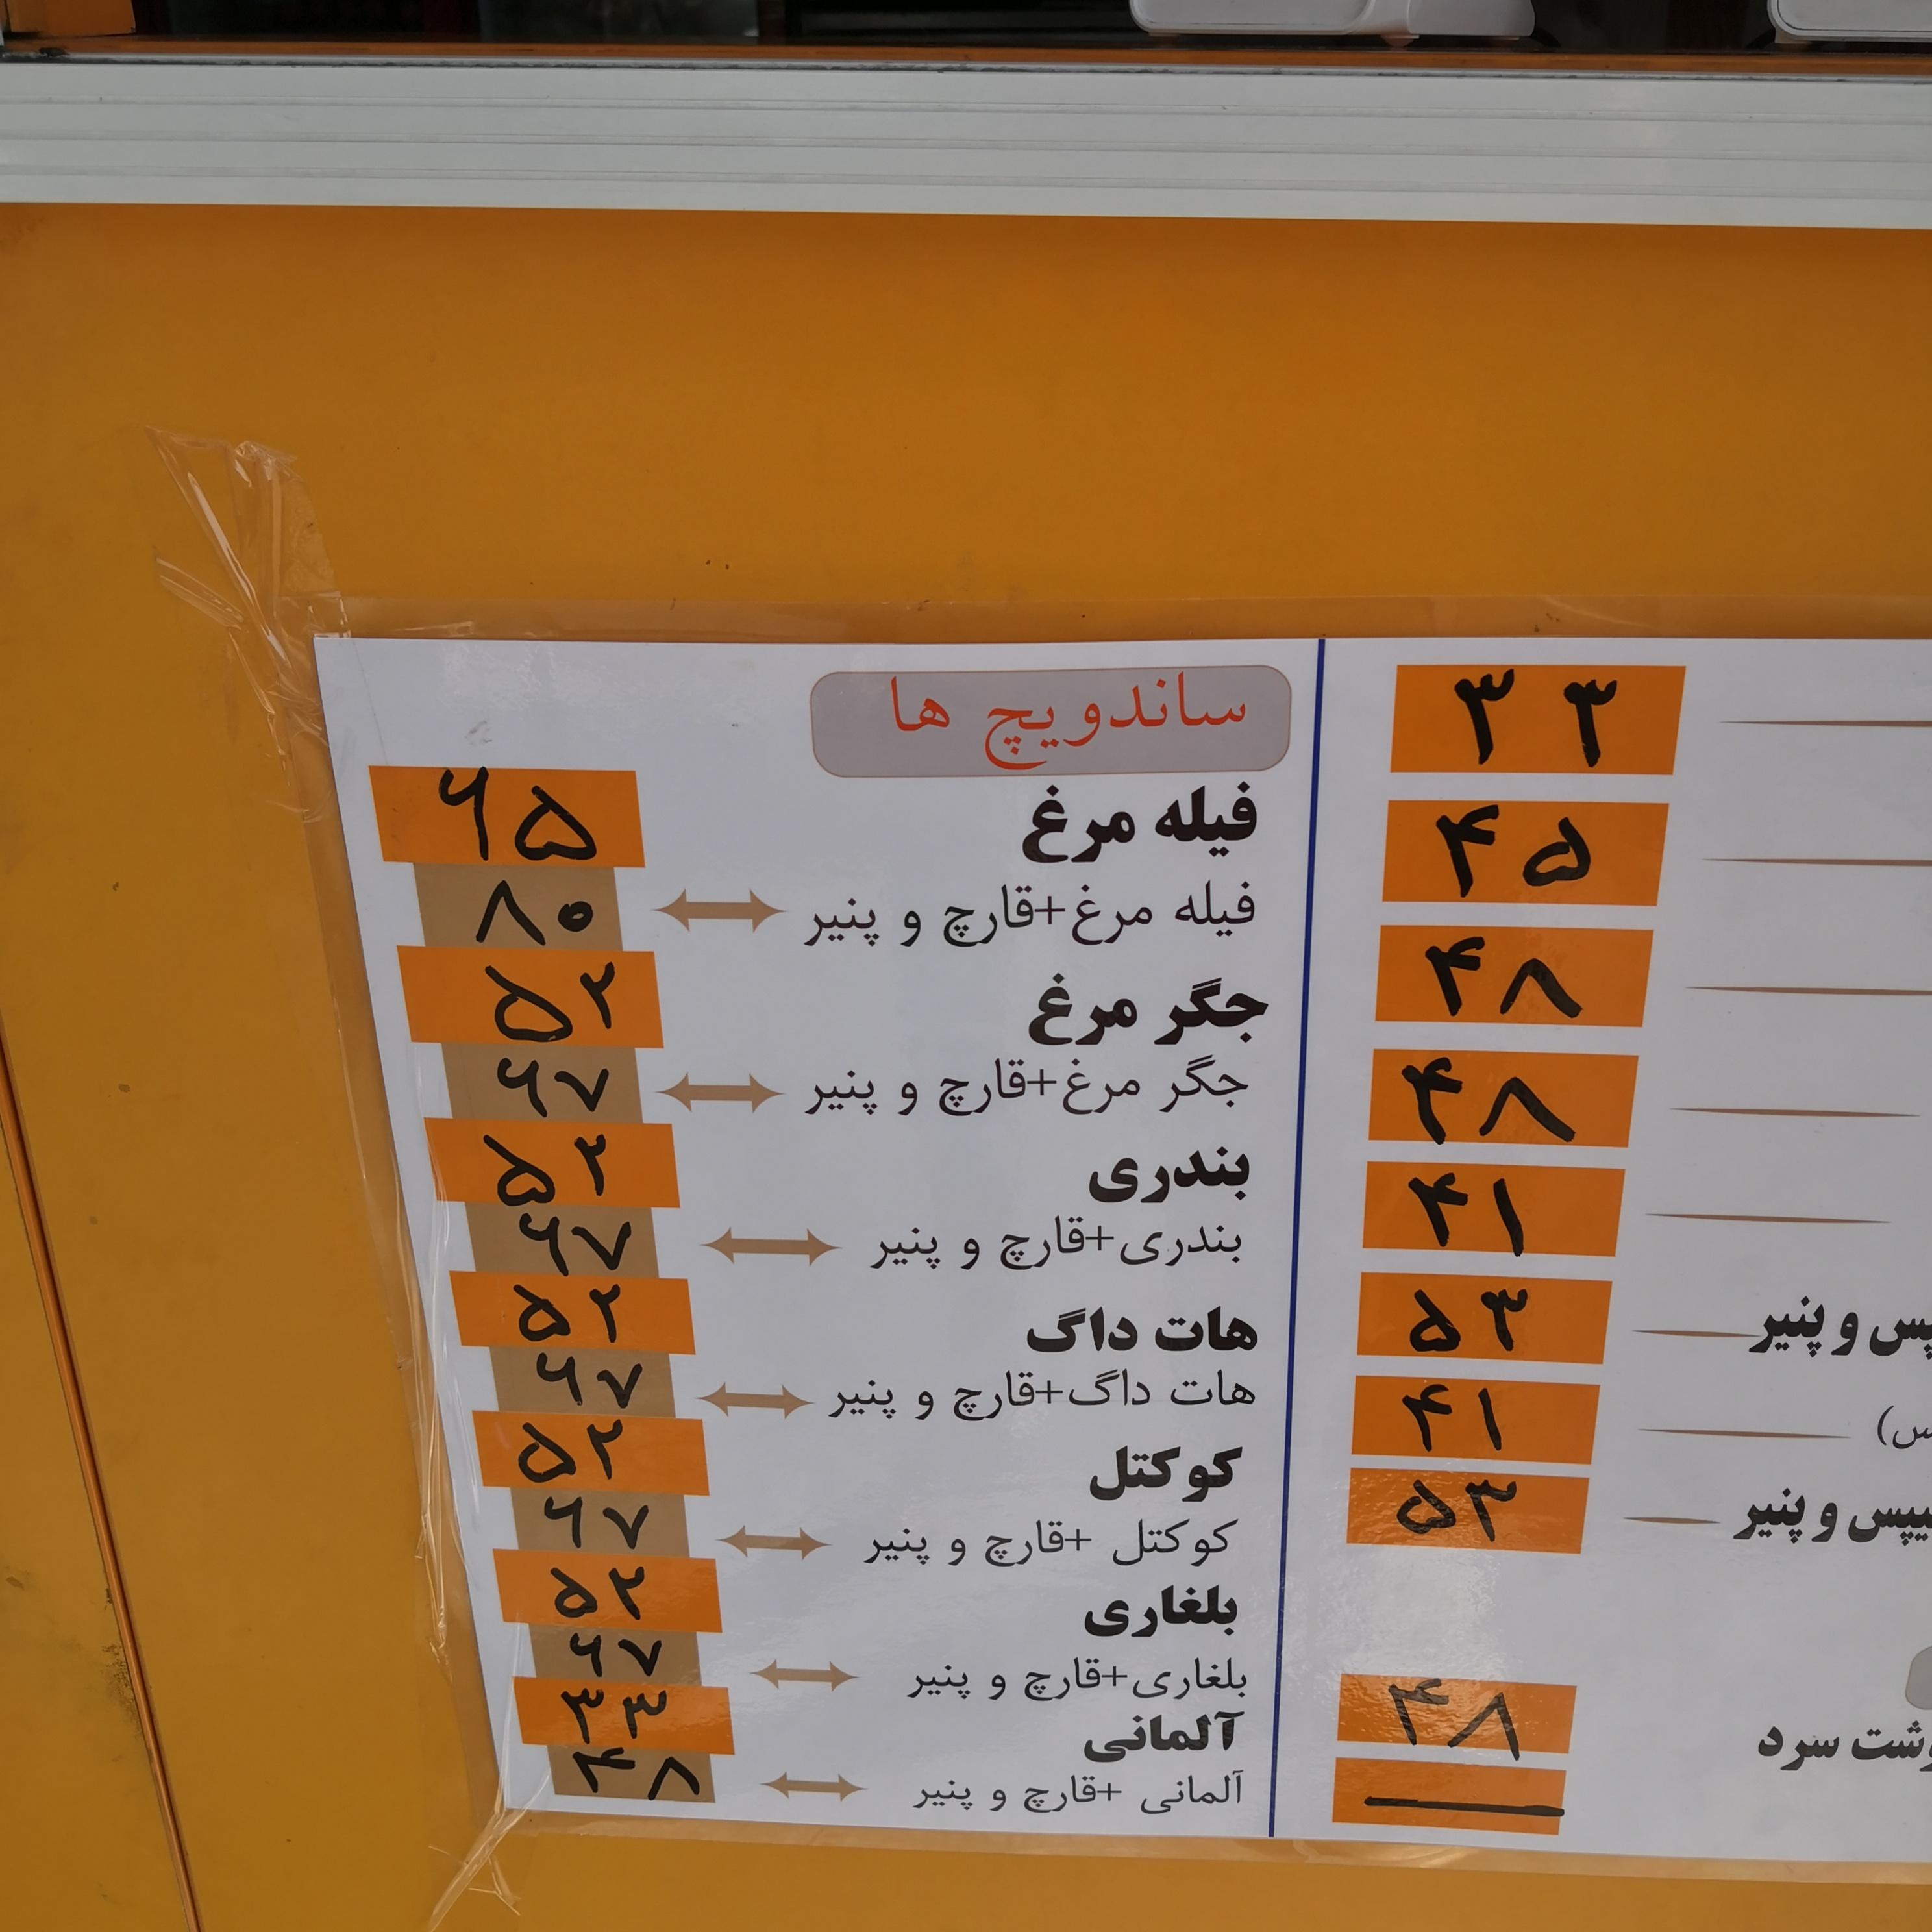 ۳۳
۴۵
۴۸
۴۸
۴۱
و پنیر ۵۳
۴۱
و پنیر ۵۳
سرد ۴۸
ساندویچ ها
فیله مرغ ۶۵
فیله مرغ+قارچ و پنیر ۸۰
جگر مرغ ۵۲
جگر مرغ+قارچ و پنیر ۶۷
بندری ۵۲
بندری+قارچ و پنیر ۶۷
هات داگ ۵۲
هات داگ+قارچ و پنیر ۶۷
کوکتل ۵۲
کوکتل +قارچ و پنیر ۶۷
بلغاری ۵۲
بلغاری+قارچ و پنیر ۶۷
آلمانی ۳۳
آلمانی +قارچ و پنیر ۴۸